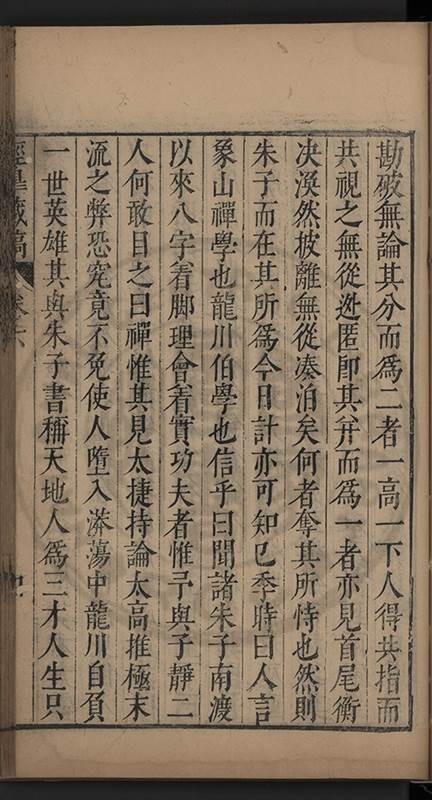 勘破無論其分而為二者一高一下人得共指而
共視之無從迯匿卽其并而為一者亦見首尾衡
决渙然披離無從湊泊矣何者奪其所恃也然則
朱子而在其所爲今日計亦可知已季時曰人言
象山禪學也龍川伯學也信乎曰聞諸朱子南渡
以來八字着脚理會着實功夫者惟予與子靜二
人何敢目之曰禪惟其見太捷持論太高推極末
流之弊恐究竟不免使人墮入漭蕩中龍川自負
一世英雄其與朱子書稱天地人爲三才人生只
涇臯藏稿 卷六